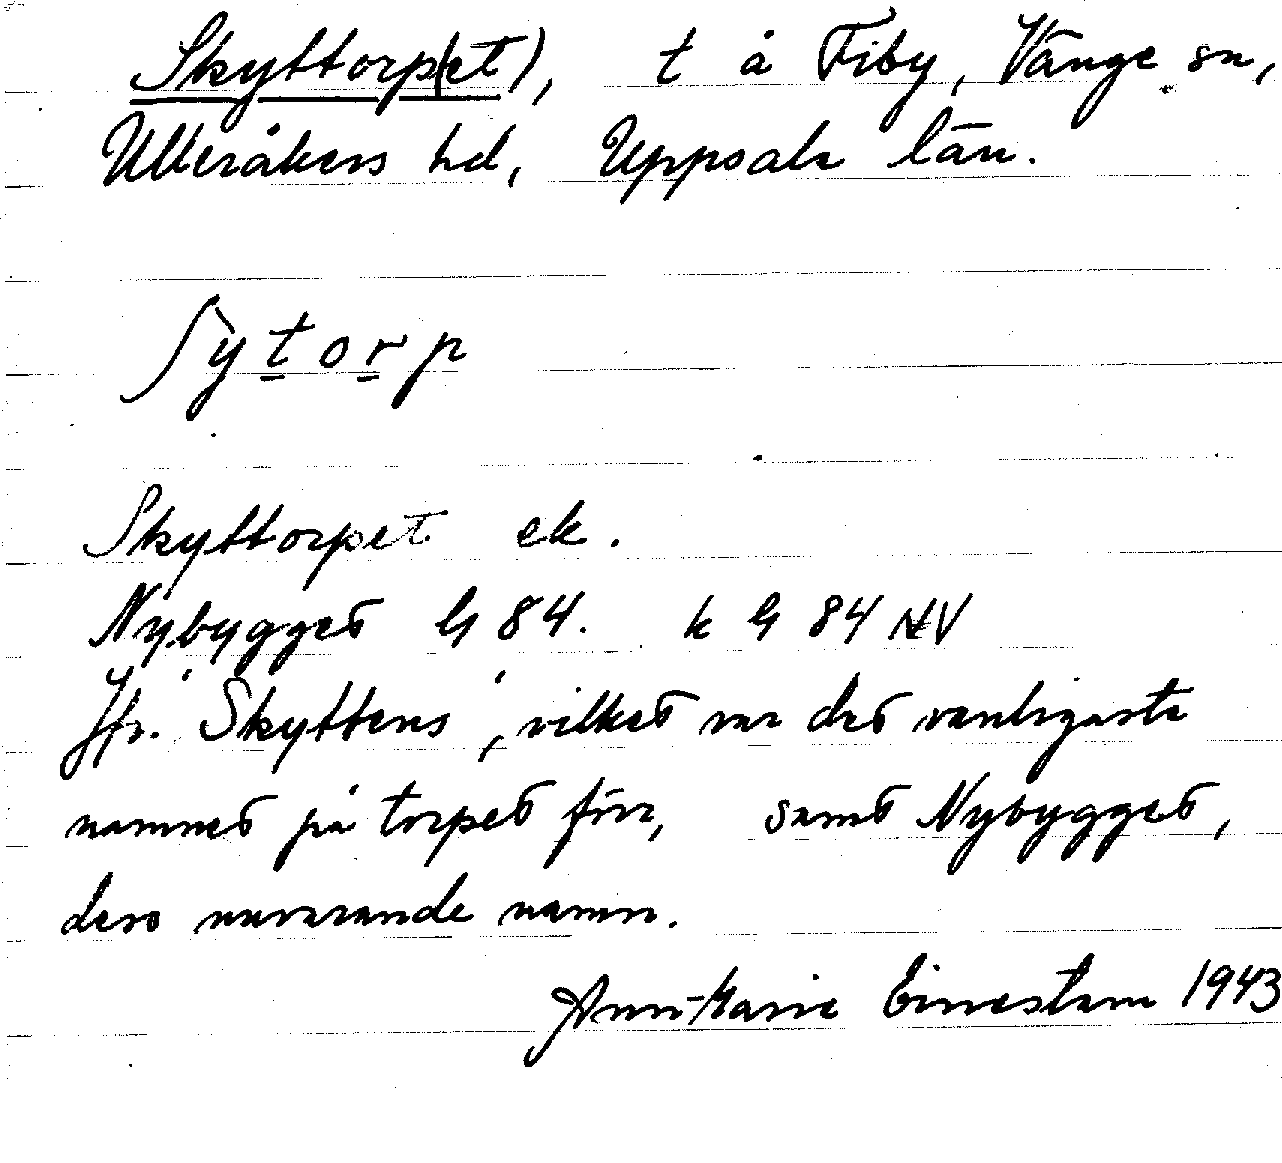 Skyttorp(et), t å Fiby, Vänge sn,
Ulleråkers hd, Uppsala län.
ʃytorp
Skyttorpet ek.
Nybygget G 84. k G 84 NV
Jfr. 'Skyttens', vilket var det vanligaste
namnet på torpet förr, samt Nybygget,
dess nuvarande namn.
Ann-Marie Einestam 1943